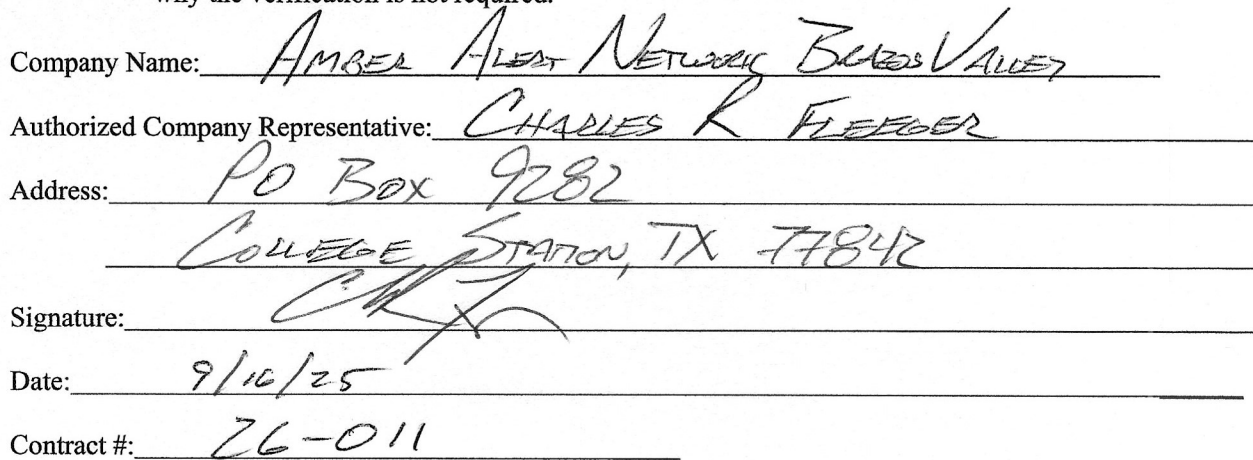 why the verification is not required.
Company Name: AMBER ALERT NETWORK BRAZOS VALLEY
Authorized Company Representative: CHARLES R FLEEGER
Address: PO BOX 9282
COLLEGE STATION, TX 77842
Signature:
Date: 9/16/25
Contract #: 26-011